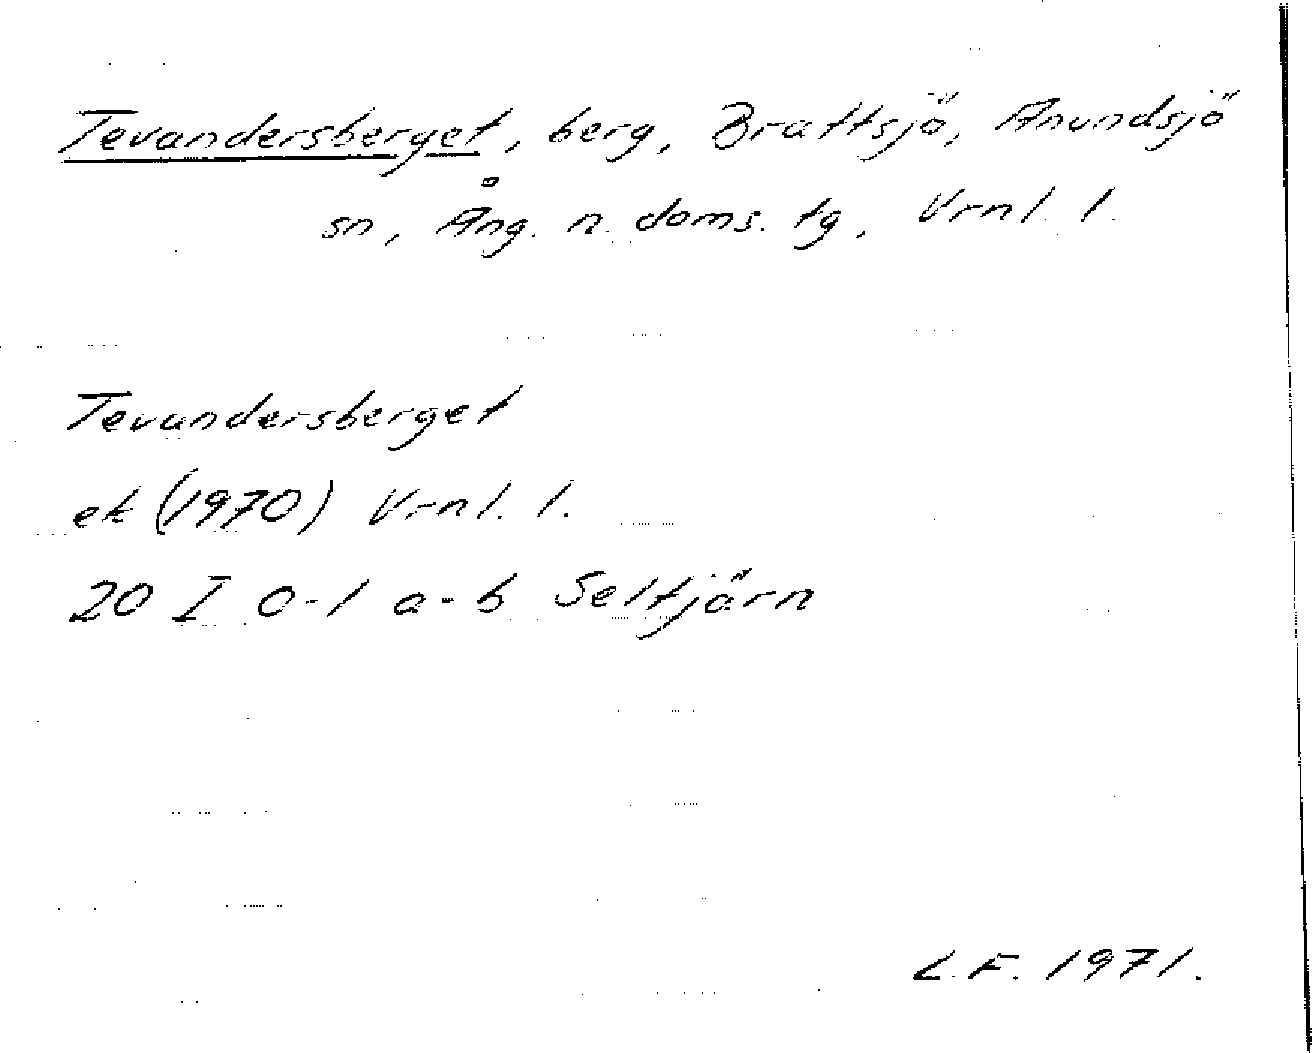 Tevandersberget, berg, Brattsjö, Anundsjö
sn, Ång. n. doms. tg, Vrnl. l.
Tevandersberget
ek (1970) Vrnl. l.
20 I 0-1 a-b Seltjärn
L.F. 1971.